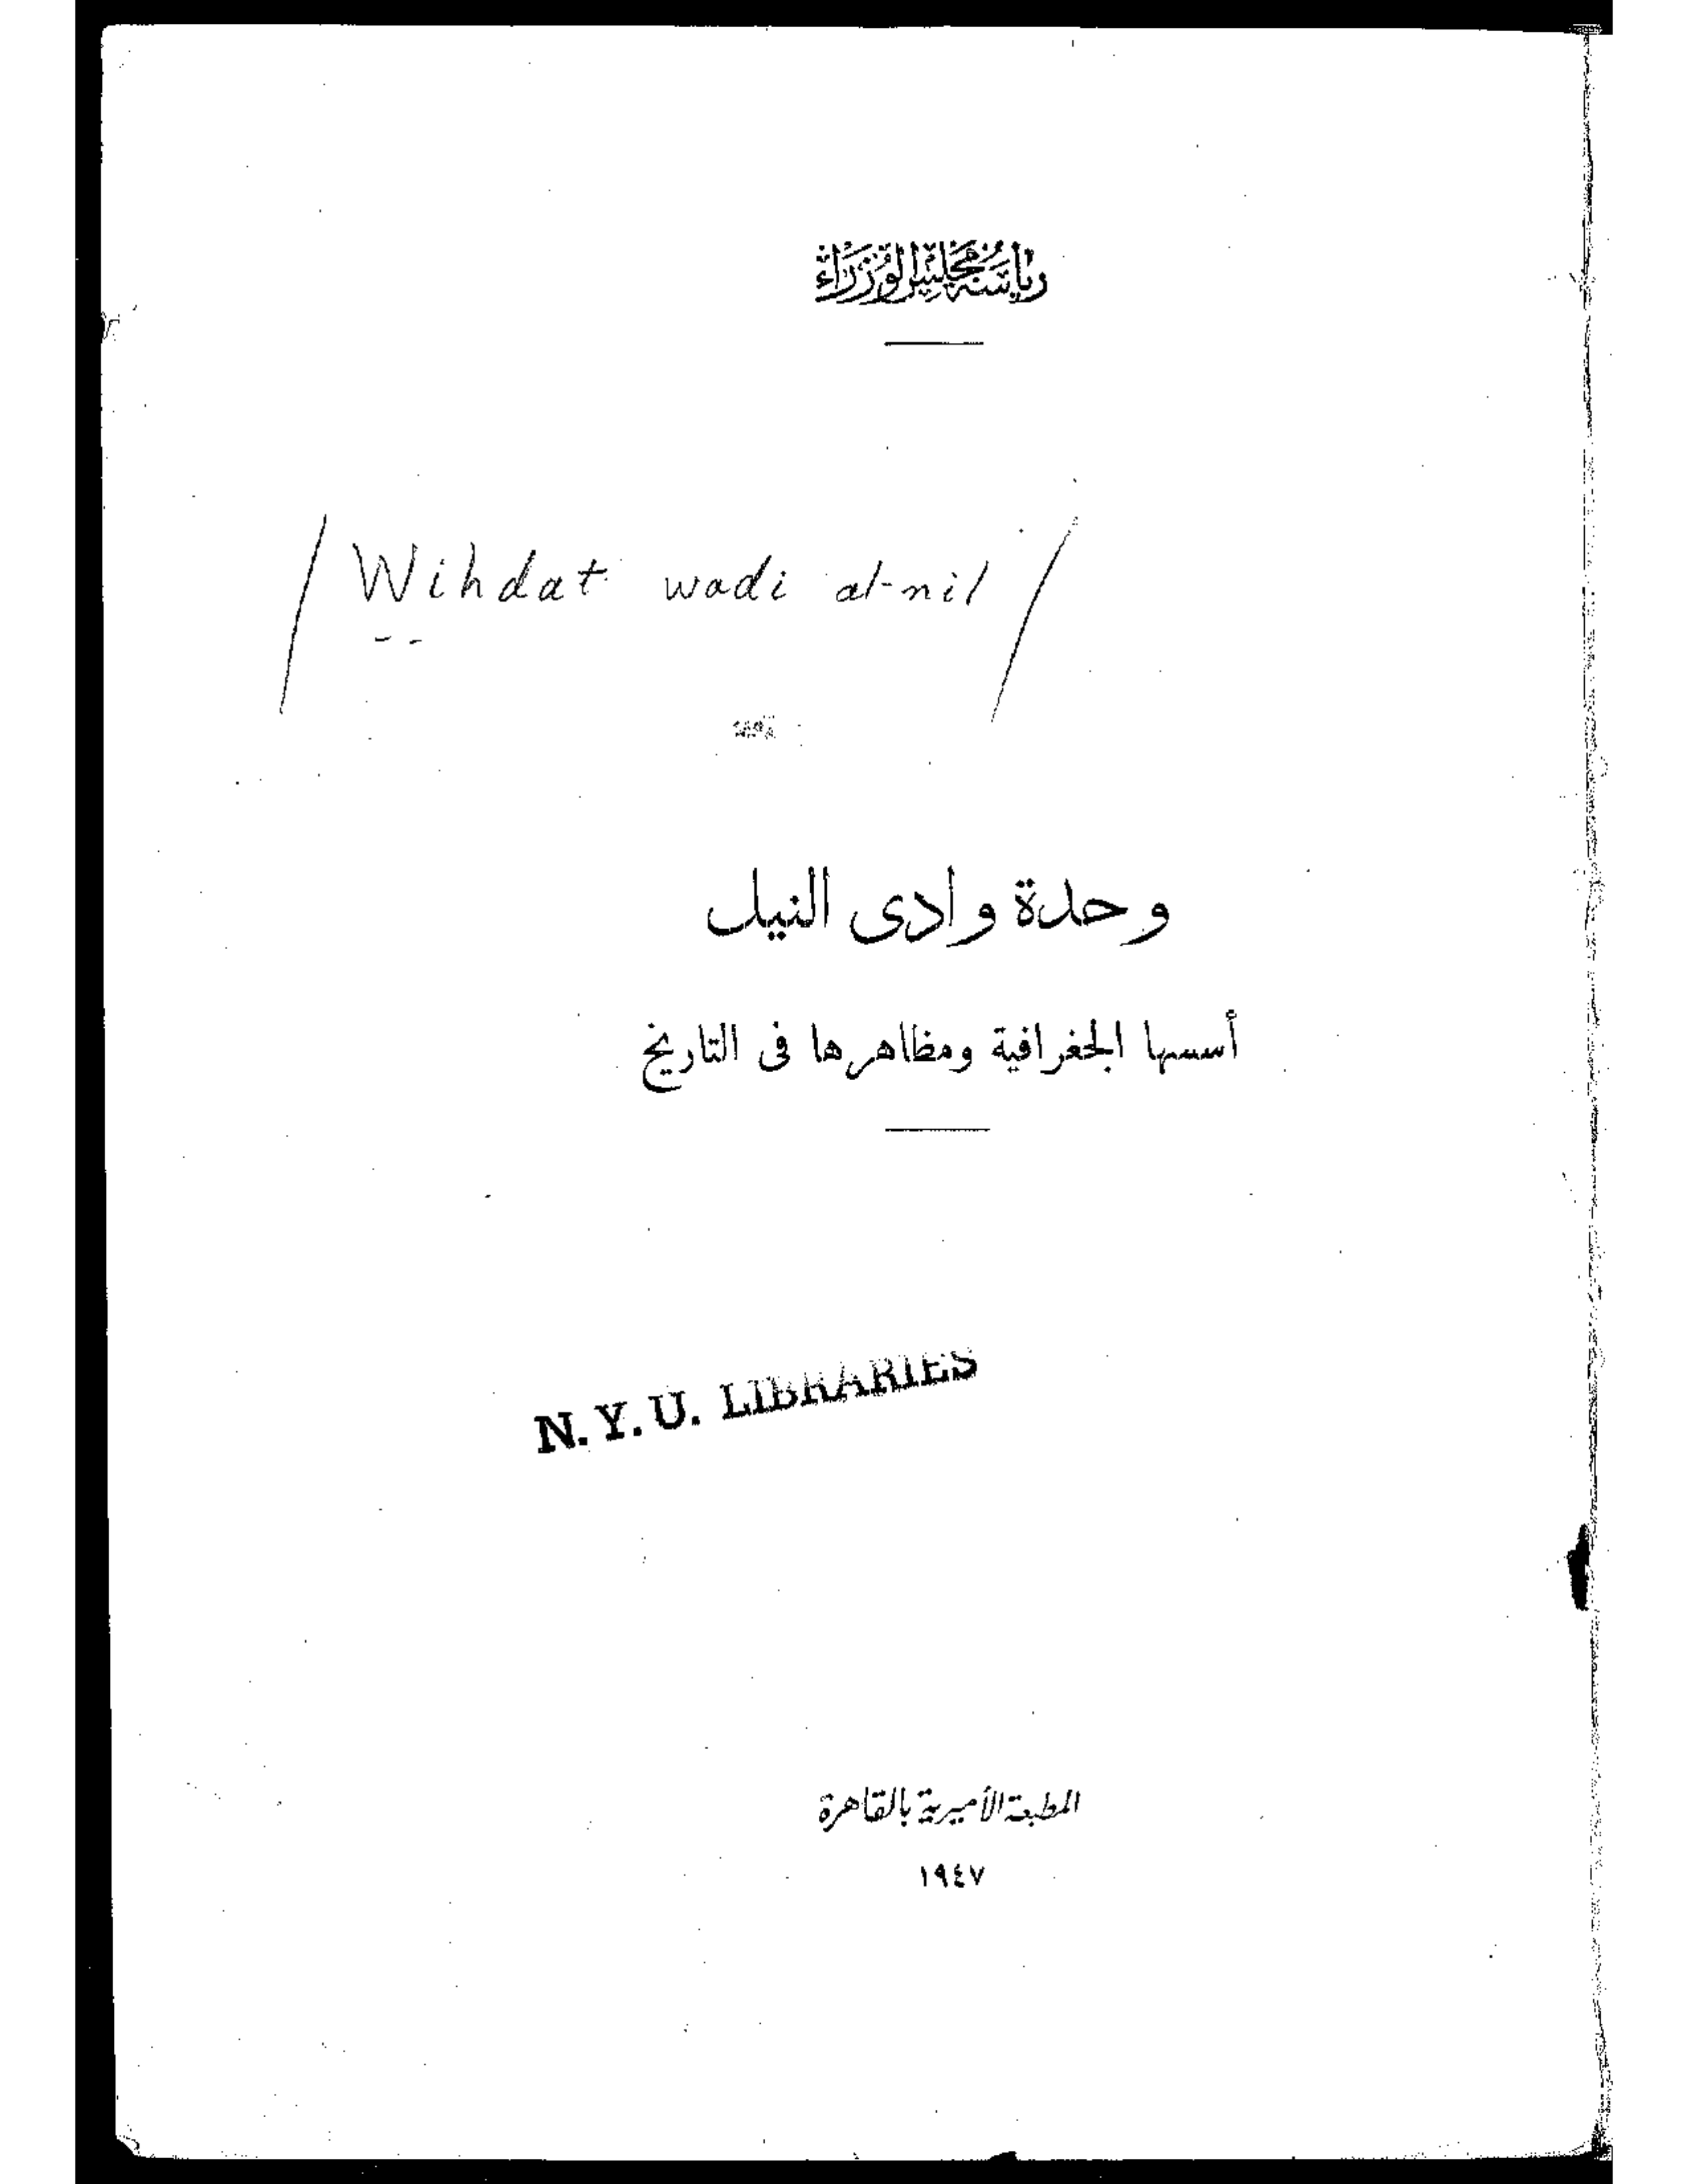 رياسة مجلس الوزراء
/ Wihdat wadi al-nil /
وحدة وادى النيل
أسسها الجغرافية ومظاهرها فى التاريخ
N. Y. U. LIBRARIES
المطبعة الأميرية بالقاهرة
١٩٤٧